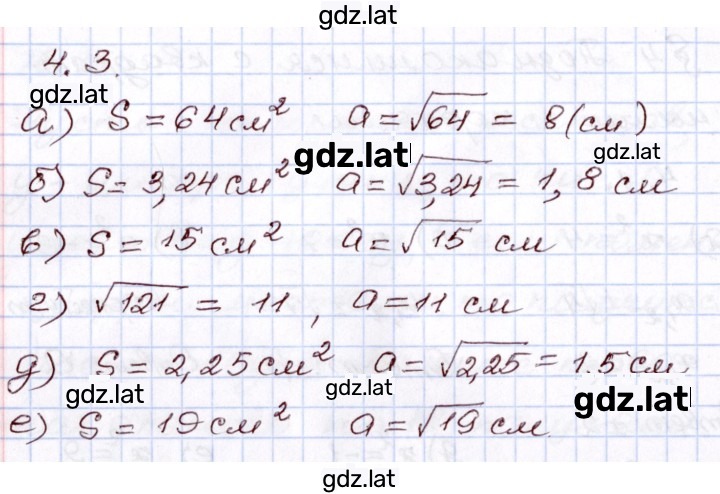 gdz.lat
4.3.
gdz.lat
а) S = 64 см² a = √64 = 8 (см)
gdz.lat gdz.lat
б) S = 3,24 см² a = √3,24 = 1,8 см
в) S = 15 см² a = √15 см
г) √121 = 11, a = 11 см
д) S = 2,25 см² a = √2,25 = 1.5 см.
gdz.lat gdz.lat gdz.lat
е) S = 19 см² a = √19 см.
gdz.lat